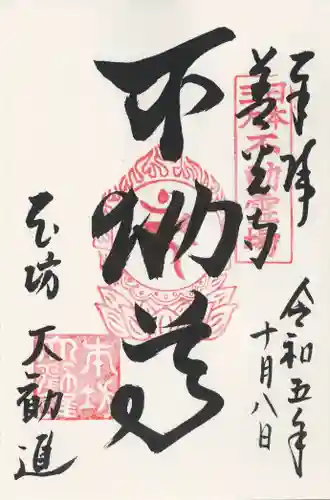 奉拝
善光寺
日本三
不動霊場
不動尊
令和五年
十月八日
本坊
大勧進